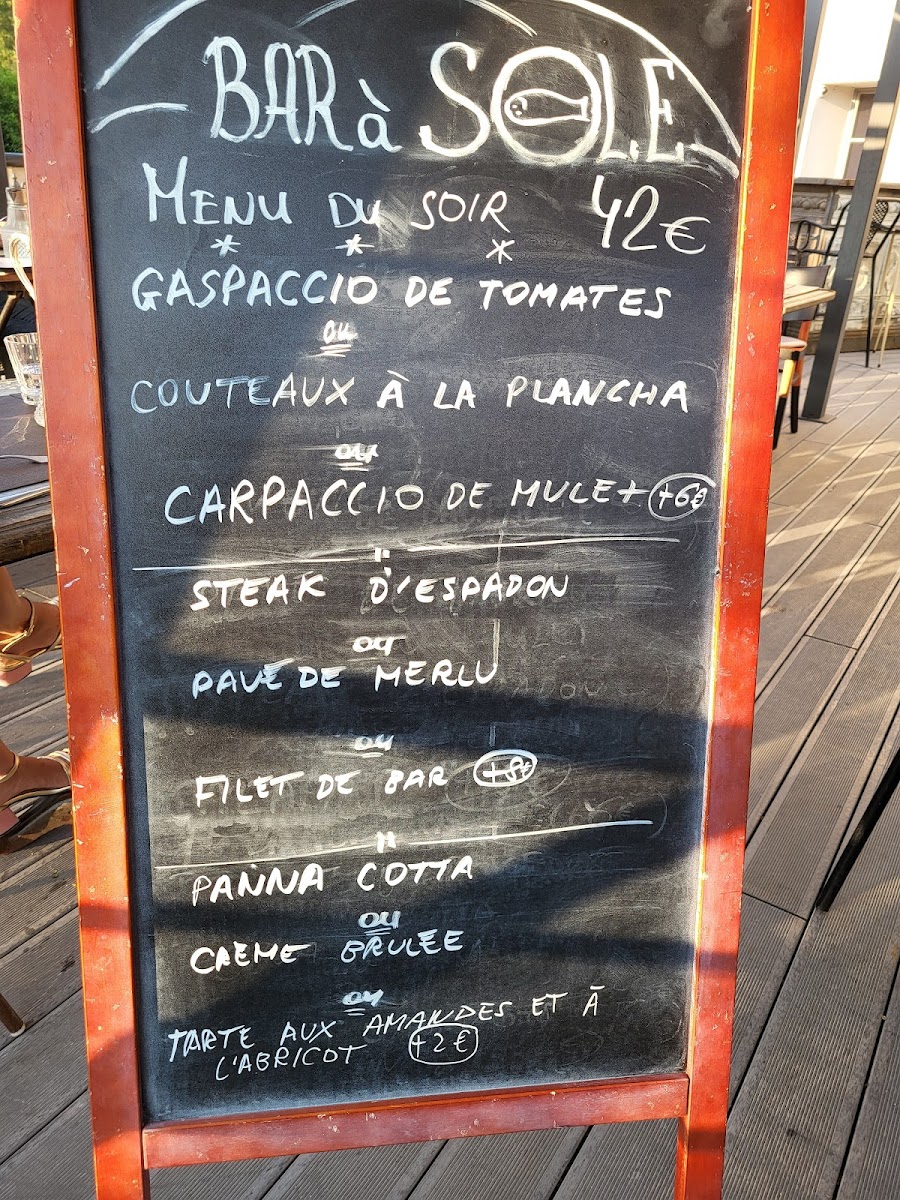 BAR à SOLE
MENU DU SOIR 42€
* * *
GASPACCIO DE TOMATES
ou
COUTEAUX À LA PLANCHA
ou
CARPACCIO DE MULET +6€
STEAK D'ESPADON
ou
PAVÉ DE MERLU
ou
FILET DE BAR +8€
PANNA COTTA
ou
CREME BRULEE
ou
TARTE AUX AMANDES ET À
L'ABRICOT +2€